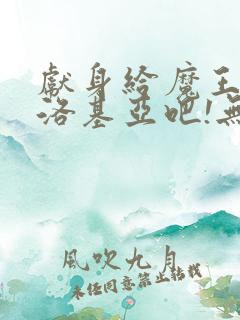 獻身給魔王
洛基亞吧!無
風吹九月
未經同意禁止轉載